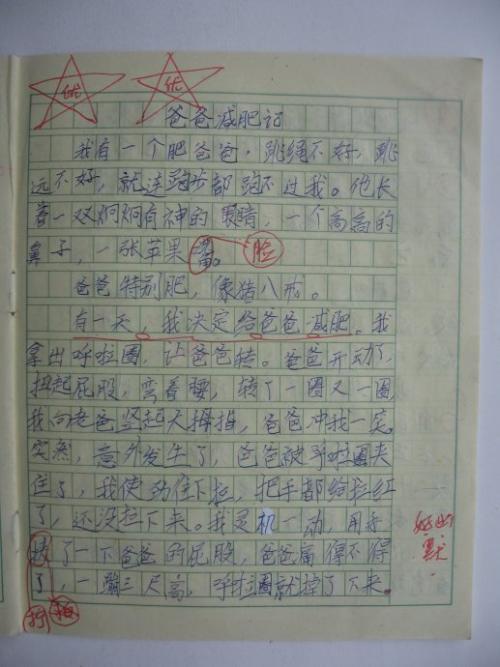 优 优
爸爸减肥记
我有一个肥爸爸，跳绳不好，跳
远不好，就连跑步都跑不过我。他长
着一双炯炯有神的眼睛，一个高高的
鼻子，一张苹果 。 脸
爸爸特别肥，像猪八戒。
有一天，我决定给爸爸减肥。我
拿出呼拉圈，让爸爸转。爸爸开动了，
扭起屁股，弯着腰，转了一圈又一圈
我向老爸竖起大拇指，爸爸冲我一笑。
突然，意外发生了，爸爸被呼啦圈夹
住了，我使劲往下拉，把手都给拉红
了，还没拉下来。我灵机一动，用手
了一下爸爸的屁股，爸爸 得不得
了，一蹦三尺高，呼拉圈就掉了下来。
好幽
默